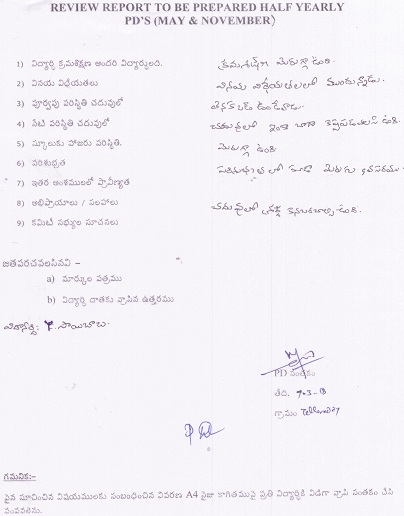 REVIEW REPORT TO BE PREPARED HALF YEARLY
PD'S (MAY & NOVEMBER)
1) విద్యార్థి క్రమశిక్షణ అందరి విద్యార్థులది. క్రమశిక్షణ మెరుగ్గా ఉంది.
2) వినయ విధేయతలు వినయ విధేయతలలో ముందున్నాడు.
3) పూర్వపు పరిస్థితి చదువులో వెనకబడి ఉండేవాడు.
4) నేటి పరిస్థితి చదువులో చదువులో ఇంకా బాగా కష్టపడవలసి ఉంది.
5) స్కూలుకు హాజరు పరిస్థితి. మెరుగ్గా ఉంది.
6) పరిశుభ్రత పరిశుభ్రతలో కూడా మెరుగు అవసరము.
7) ఇతర అంశములలో ప్రావీణ్యత
8) అభిప్రాయాలు / సలహాలు చదువులో శ్రద్ధ కనబరచాల్సి ఉంది.
9) కమిటీ సభ్యుల సూచనలు
జతపరచవలసినవి –
a) మార్కుల పత్రము
b) విద్యార్థి దాతకు వ్రాసిన ఉత్తరము
విద్యార్థి: సాయిబాబు.
PD సంతకం
తేది. 7-3-18
గ్రామం
గమనిక:-
పైన సూచించిన విషయములకు సంబంధించిన వివరణ A4 సైజు కాగితముపై ప్రతి విద్యార్థికి విడిగా వ్రాసి సంతకం చేసి
పంపవలెను.